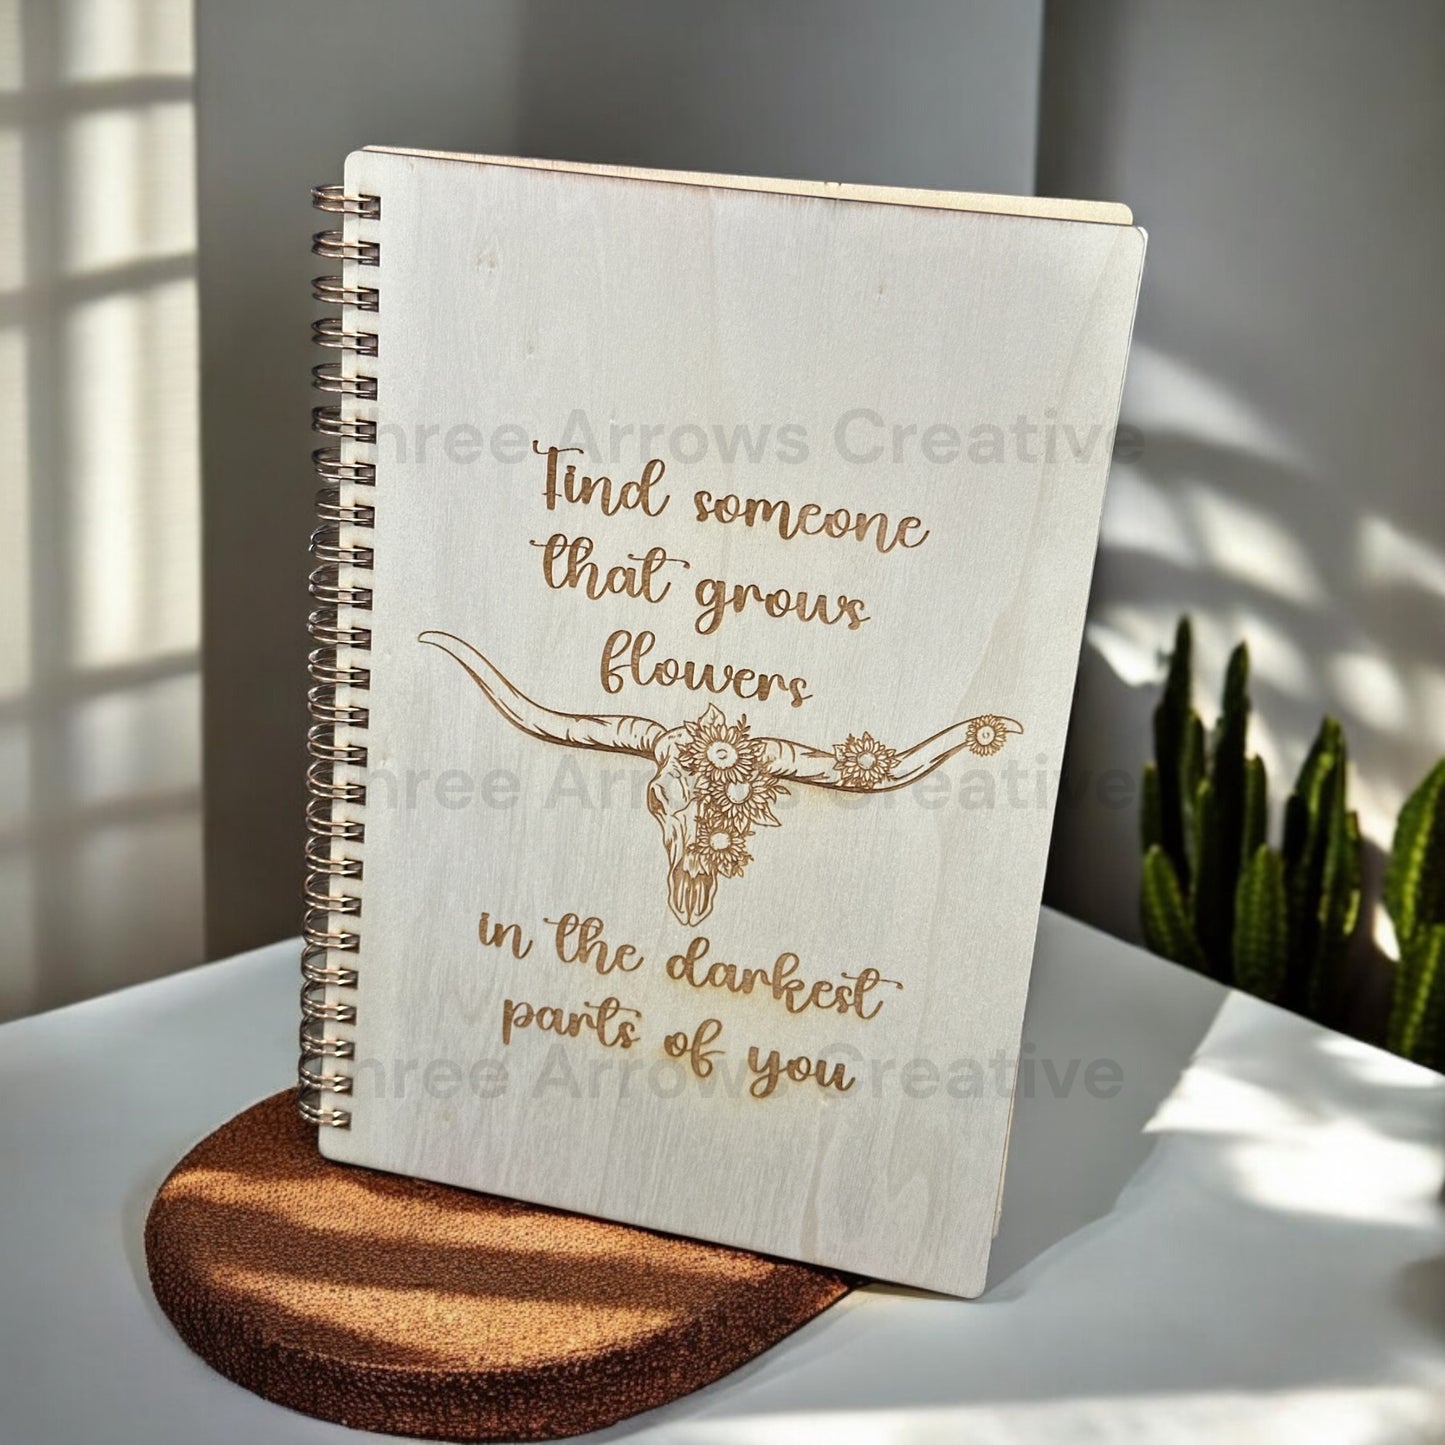 Three Arrows Creative
Find someone
that grows
flowers
Three Arrows Creative
in the darkest
parts of you
Three Arrows Creative